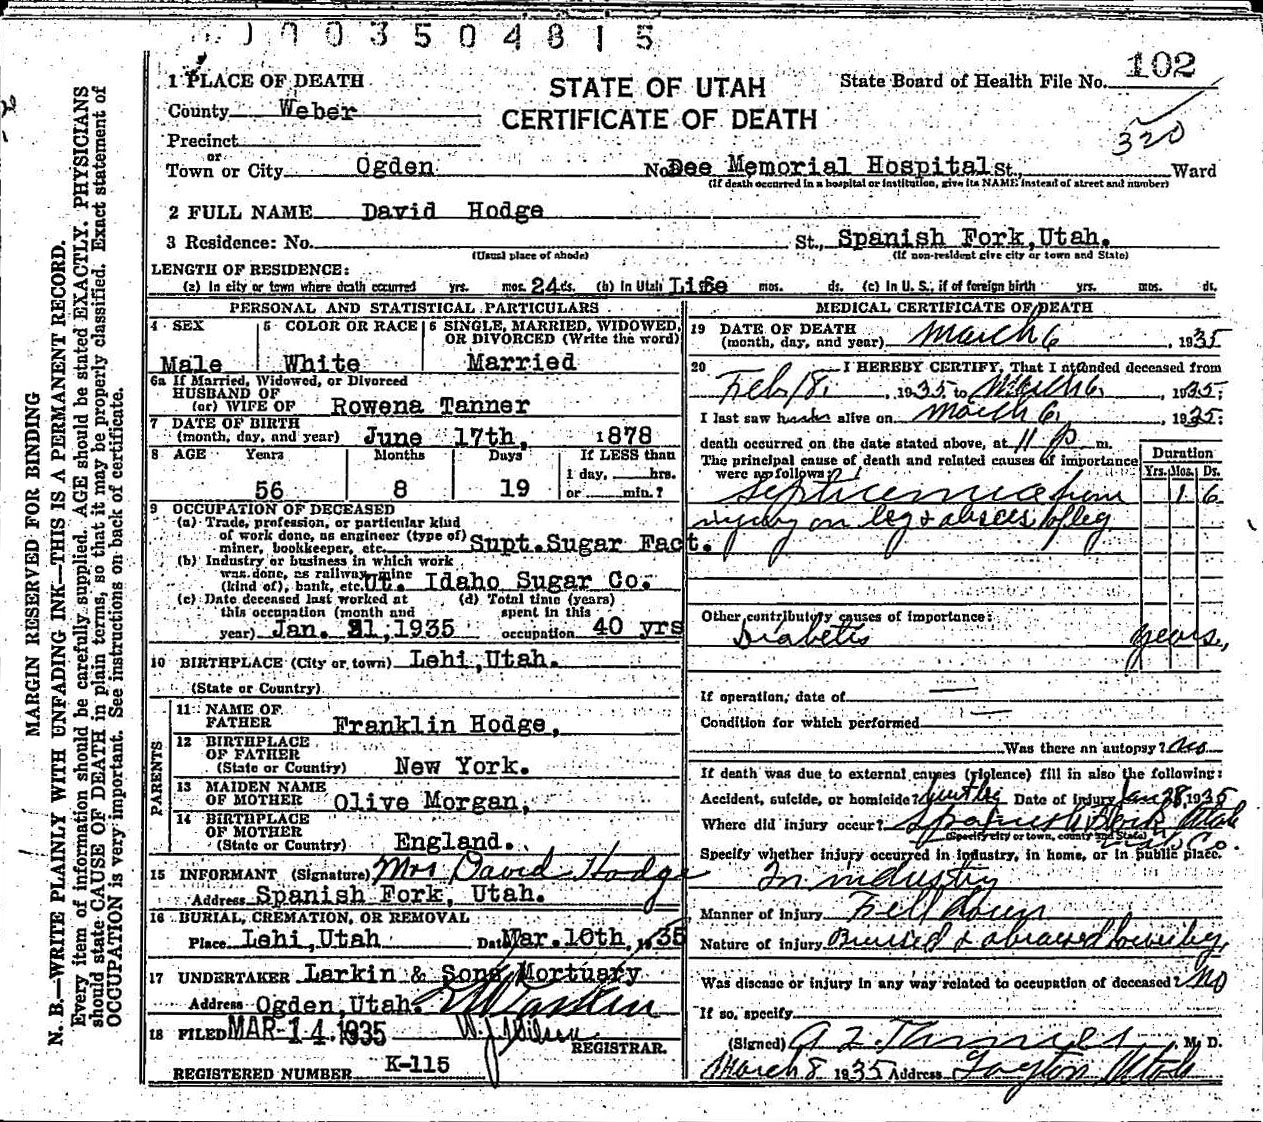 0003504815
MARGIN RESERVED FOR BINDING
N. B.—WRITE PLAINLY WITH UNFADING INK—THIS IS A PERMANENT RECORD.
Every item of information should be carefully supplied. AGE should be stated EXACTLY. PHYSICIANS
should state CAUSE OF DEATH in plain terms, so that it may be properly classified. Exact statement of
OCCUPATION is very important. See instructions on back of certificate.
1 PLACE OF DEATH
STATE OF UTAH
CERTIFICATE OF DEATH
State Board of Health File No. 102
320
County Weber
Precinct
or
Town or City Ogden No. Dee Memorial Hospital St., Ward
(If death occurred in a hospital or institution, give its NAME instead of street and number)
2 FULL NAME David Hodge
3 Residence: No. St., Spanish Fork, Utah.
(Usual place of abode) (If non-resident give city or town and State)
LENGTH OF RESIDENCE:
(a) In city or town where death occurred yrs. mos. 24 ds. (b) In Utah Life mos. ds. (c) In U. S., if of foreign birth yrs. mos. ds.
PERSONAL AND STATISTICAL PARTICULARS
4 SEX
Male
5 COLOR OR RACE
White
6 SINGLE, MARRIED, WIDOWED,
OR DIVORCED (Write the word)
Married
6a If Married, Widowed, or Divorced
HUSBAND OF
(or) WIFE OF Rowena Tanner
7 DATE OF BIRTH
(month, day, and year) June 17th, 1878
8 AGE Years Months Days If LESS than
1 day, hrs.
56 8 19 or min.?
9 OCCUPATION OF DECEASED
(a) Trade, profession, or particular kind
of work done, as engineer (type of)
miner, bookkeeper, etc. Supt. Sugar Fact.
(b) Industry or business in which work
was done, as railway, mine
(kind of), bank, etc. Ut. Idaho Sugar Co.
(c) Date deceased last worked at
this occupation (month and
year) Jan. 31, 1935
(d) Total time (years)
spent in this
occupation 40 yrs
10 BIRTHPLACE (City or town) Lehi, Utah.
(State or Country)
PARENTS
11 NAME OF
FATHER Franklin Hodge,
12 BIRTHPLACE
OF FATHER
(State or Country) New York.
13 MAIDEN NAME
OF MOTHER Olive Morgan,
14 BIRTHPLACE
OF MOTHER
(State or Country) England.
15 INFORMANT (Signature) Mrs David Hodge
Address Spanish Fork, Utah.
16 BURIAL, CREMATION, OR REMOVAL
Place Lehi, Utah Date Mar. 10th, 1935
17 UNDERTAKER Larkin & Sons Mortuary
Address Ogden, Utah.
18 FILED MAR 14 1935
REGISTRAR.
REGISTERED NUMBER K-115
MEDICAL CERTIFICATE OF DEATH
19 DATE OF DEATH
(month, day, and year) March 6, 1935
20 I HEREBY CERTIFY, That I attended deceased from
Feb 18, 1935, to March 6, 1935;
I last saw him alive on March 6, 1935;
death occurred on the date stated above, at 11 p m.
The principal cause of death and related causes of importance
were as follows:
Duration
Yrs. Mos. Ds.
Septicemia from 1 6
injury on leg & absces of leg
Other contributory causes of importance:
Diabetis years,
If operation, date of —
Condition for which performed —
Was there an autopsy? no
If death was due to external causes (violence) fill in also the following:
Accident, suicide, or homicide? Date of injury Jan 28, 1935
Where did injury occur? Spanish Fork Utah
(Specify city or town, county and State) Utah Co.
Specify whether injury occurred in industry, in home, or in public place.
In industry
Manner of injury Fell down
Nature of injury Bruised & abrased lower leg,
Was disease or injury in any way related to occupation of deceased? No
If so, specify
(Signed) M. D.
March 8 1935 Address Layton Utah